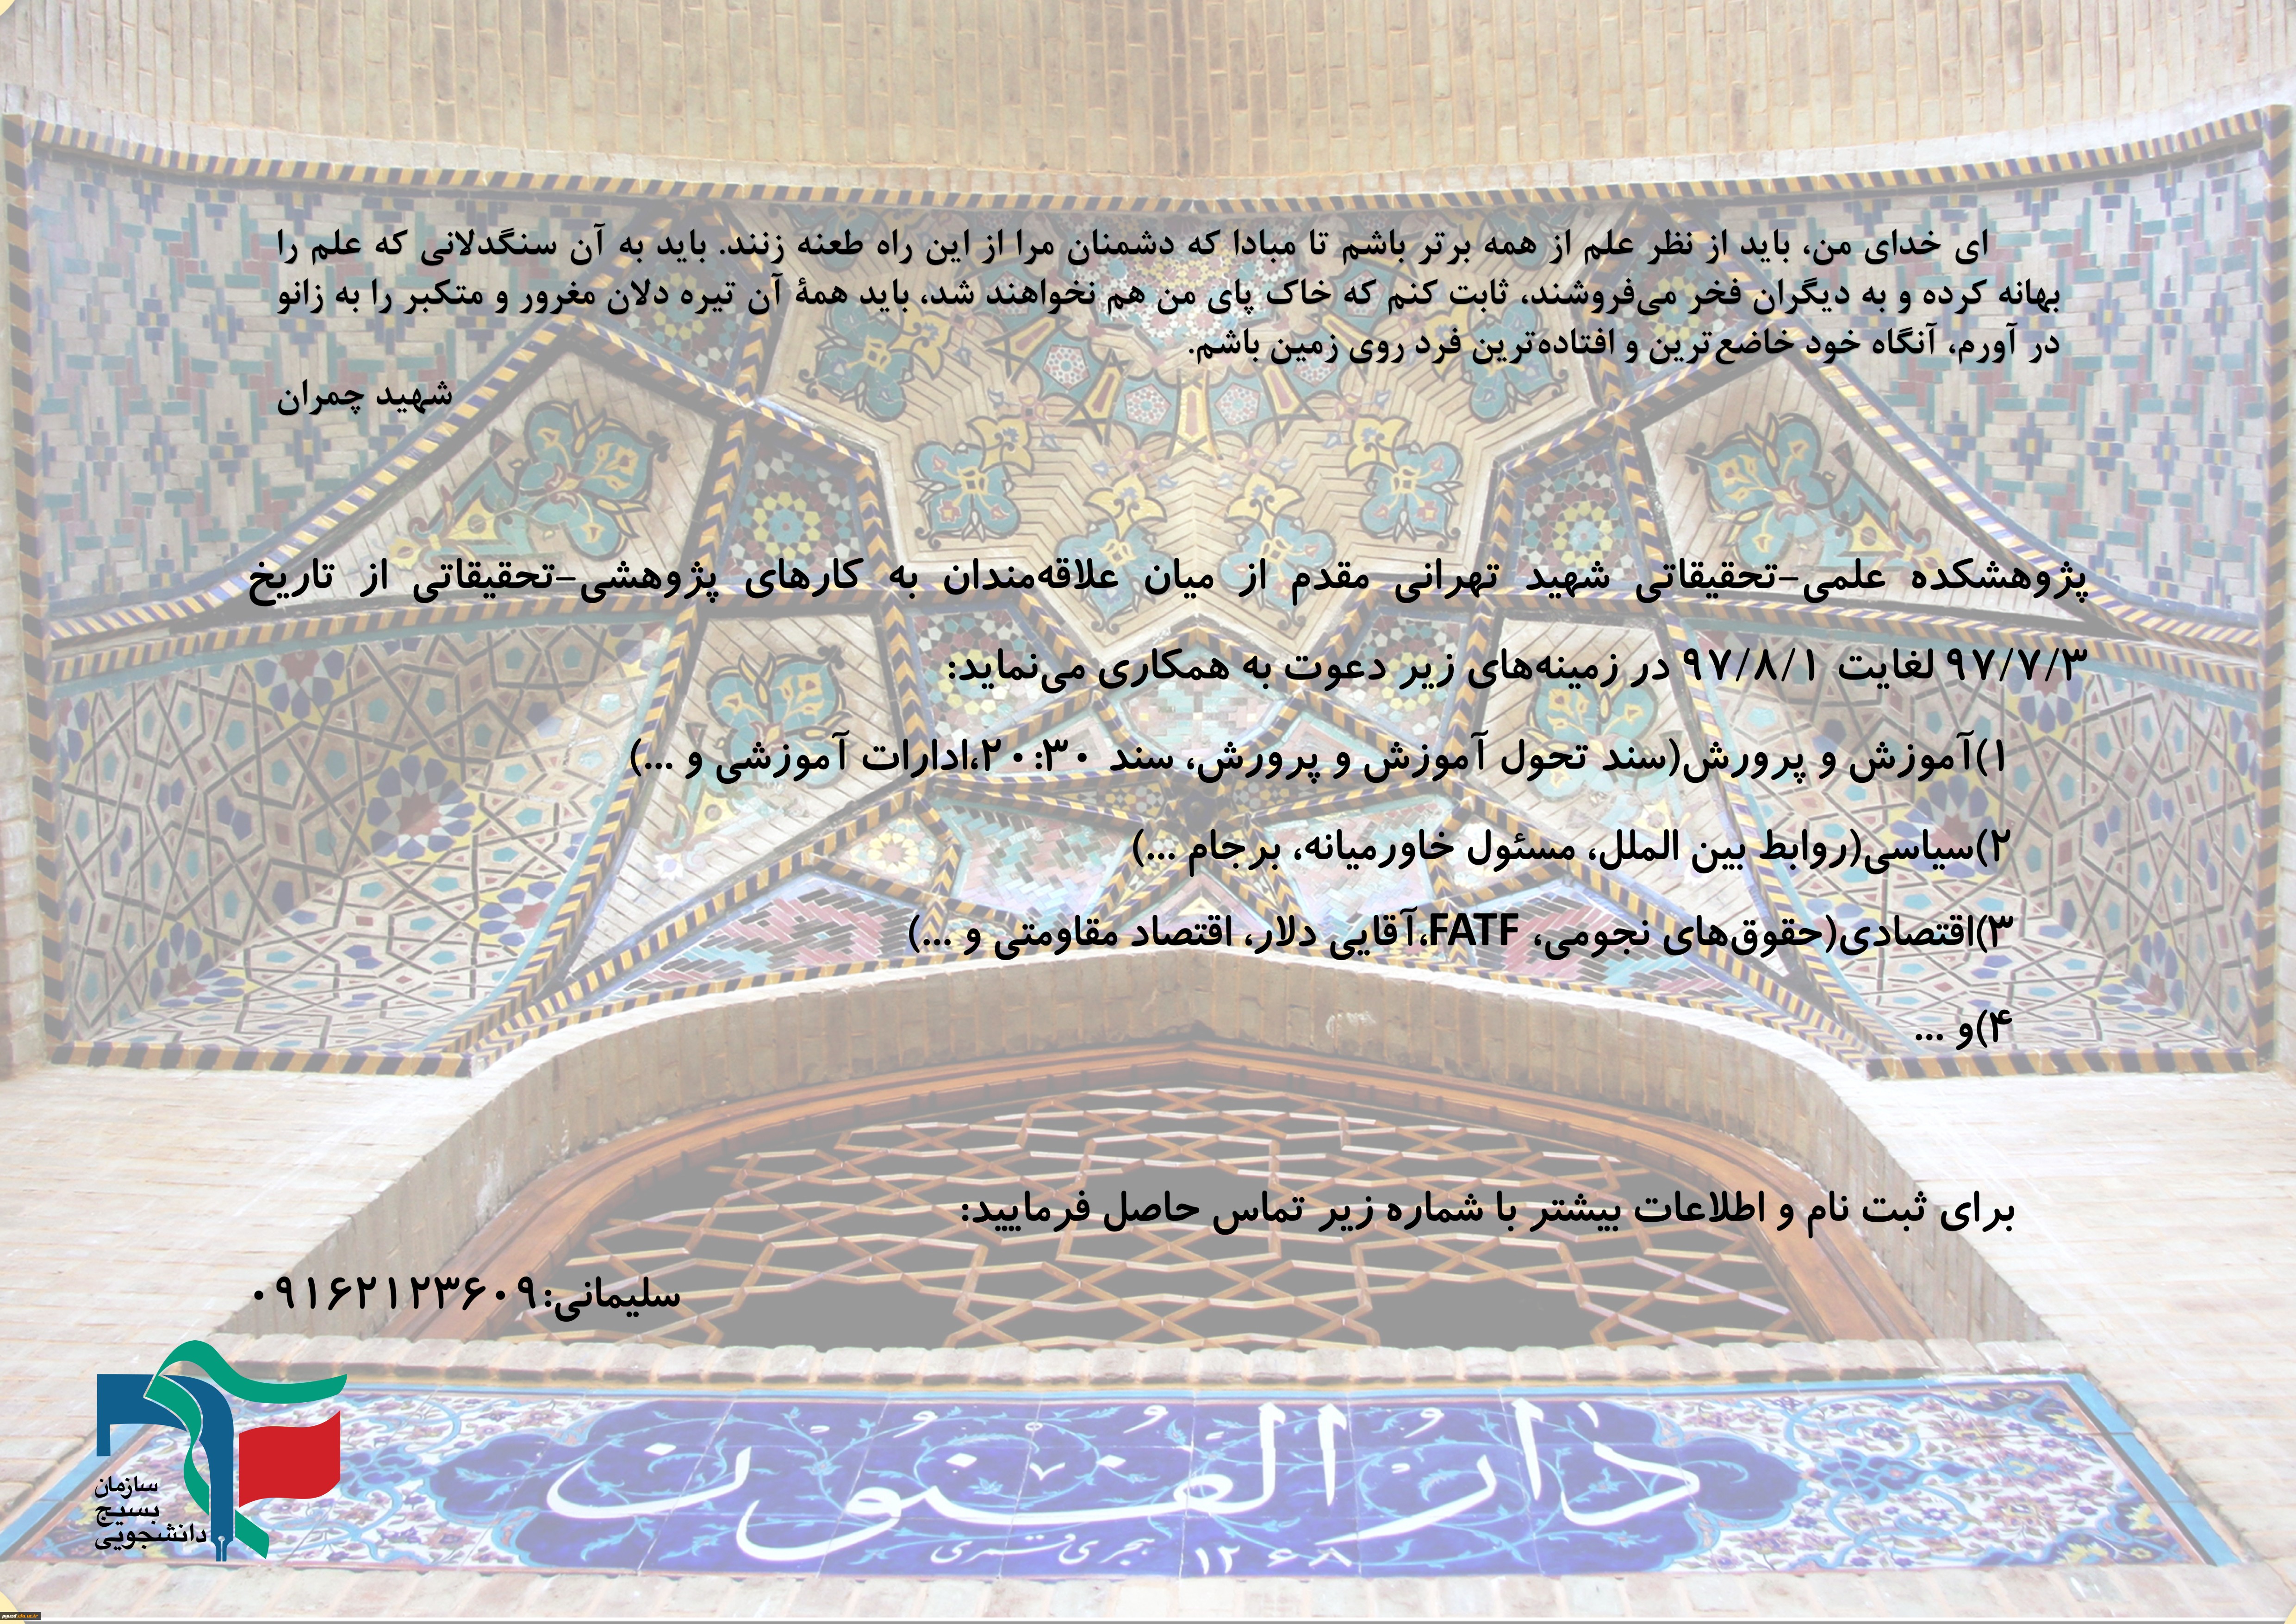 ای خدای من، باید از نظر علم از همه برتر باشم تا مبادا که دشمنان مرا از این راه طعنه زنند. باید به آن سنگدلانی که علم را
بهانه کرده و به دیگران فخر می‌فروشند، ثابت کنم که خاک پای من هم نخواهند شد، باید همهٔ آن تیره دلان مغرور و متکبر را به زانو
در آورم، آنگاه خود خاضع‌ترین و افتاده‌ترین فرد روی زمین باشم.
شهید چمران
پژوهشکده علمی-تحقیقاتی شهید تهرانی مقدم از میان علاقه‌مندان به کارهای پژوهشی-تحقیقاتی از تاریخ
۹۷/۷/۳ لغایت ۹۷/۸/۱ در زمینه‌های زیر دعوت به همکاری می‌نماید:
۱)آموزش و پرورش(سند تحول آموزش و پرورش، سند ۲۰:۳۰،ادارات آموزشی و ...)
۲)سیاسی(روابط بین الملل، مسئول خاورمیانه، برجام ...)
۳)اقتصادی(حقوق‌های نجومی، FATF،آقایی دلار، اقتصاد مقاومتی و ...)
۴)و ...
برای ثبت نام و اطلاعات بیشتر با شماره زیر تماس حاصل فرمایید:
سلیمانی:۰۹۱۶۲۱۲۳۶۰۹
سازمان
بسیج
دانشجویی
دارُ الفُنُون
۱۲۶۸ هجری قمری